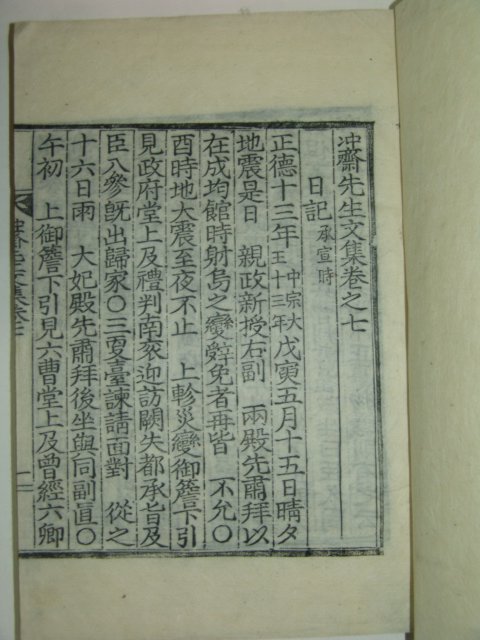 冲齋先生文集卷之七
日記承宣時
正德十三年中宗大王十三年戊寅五月十五日晴夕
地震是日 親政新授右副 兩殿先肅拜以
在成均館時射烏之變辭免者再皆 不允○
酉時地大震至夜不止 上軫災變御簷下引
見政府堂上及禮判南袞迎訪闕失都承旨及
臣入參旣出歸家○三更臺諫請面對 從之
十六日雨 大妃殿先肅拜後坐與同副直○
午初 上御簷下引見六曹堂上及曾經六卿